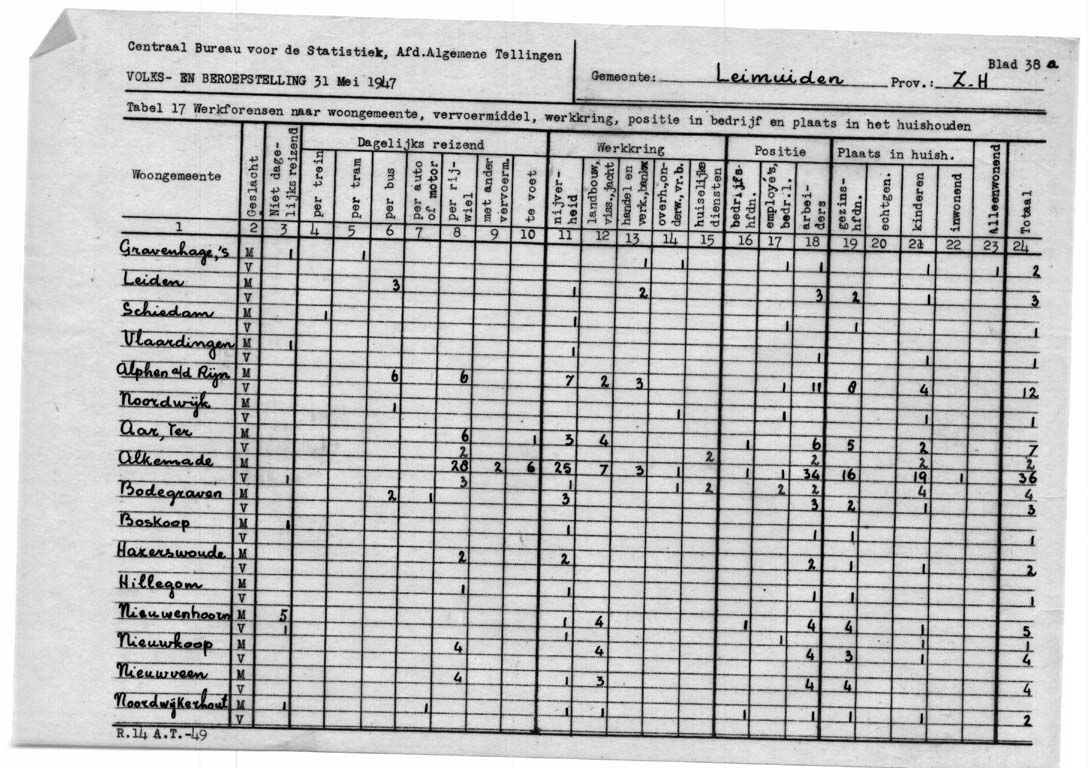 Centraal Bureau voor de Statistiek, Afd.Algemene Tellingen
VOLKS- EN BEROEPSTELLING 31 Mei 1947
Gemeente: Leimuiden Prov.: Z-H
Blad 38 a
Tabel 17 Werkforensen naar woongemeente, vervoermiddel, werkkring, positie in bedrijf en plaats in het huishouden
Woongemeente Geslacht Niet dage-lijks reizend Dagelijks reizend Werkkring Positie Plaats in huish. Alleenwonend Totaal
per trein per tram per bus per auto of motor per rij-wiel met ander vervoerm. te voet nijver-heid landbouw, viss.,jacht handel en verk.,bankw overh.,on-derw.,vr.b. huiselijke diensten bedrijfs-hfdn. employe's, bedr.l. arbei-ders gezins-hfdn. echtgen. kinderen inwonend
1 2 3 4 5 6 7 8 9 10 11 12 13 14 15 16 17 18 19 20 21 22 23 24
Gravenhage,'s M 1 1 1 1 1 1 1 1 2
V
Leiden M 3 1 2 3 2 1 3
V
Schiedam M 1 1 1 1 1
V
Vlaardingen M 1 1 1 1 1
V
Alphen a/d Rijn M 6 6 7 2 3 1 11 8 4 12
V
Noordwijk M 1 1 1 1 1
V
Aar, Ter M 6 1 3 4 1 6 5 2 7
V 2 2 2 2 2
Alkemade M 28 2 6 25 7 3 1 1 1 34 16 19 1 36
V 1 3 1 1 2 2 2 4 4
Bodegraven M 2 1 3 3 2 1 3
V
Boskoop M 1 1 1 1 1
V
Hazerswoude M 2 2 2 1 1 2
V
Hillegom M 1 1 1 1 1
V
Nieuwenhoorn M 5 1 4 1 4 4 1 5
V 1 1 1 1 1
Nieuwkoop M 4 4 4 3 1 4
V
Nieuwveen M 4 1 3 4 4 4
V
Noordwijkerhout M 1 1 1 1 1 1 1 2
V
R.14 A.T.-49